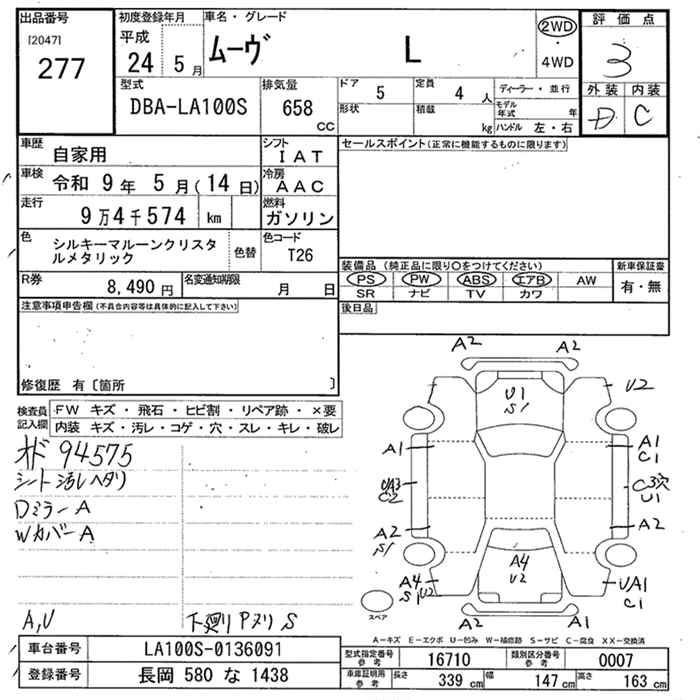 出品番号
[2047]
277
初度登録年月
平成
24 5 月
車名・グレード
ムーヴ L
2WD
・
4WD
評価点
3
外装 内装
D C
型式
DBA-LA100S
排気量
658
CC
ドア 5
定員 4 人
形状
積載 kg
ディーラー・並行
モデル年式 年
ハンドル 左・右
車歴
自家用
シフト
IAT
車検 令和 9 年 5 月(14日)
冷房
AAC
走行
9万4千574 km
燃料
ガソリン
色
シルキーマルーンクリスタ
ルメタリック
色替
色コード
T26
R券
8,490 円
名変通知期限
月 日
セールスポイント(正常に機能するものに限ります)
装備品(純正品に限り○をつけてください)
新車保証書
PS PW ABS エアB AW
SR ナビ TV カワ
有・無
後日品
注意事項申告欄(不具合内容等は具体的に記入して下さい)
修復歴 有〔箇所 〕
検査員
記入欄
FW キズ・飛石・ヒビ割・リペア跡・×要
内装 キズ・汚レ・コゲ・穴・スレ・キレ・破レ
オド 94575
シート汚レヘタリ
DミラーA
WカバーA
A,U
下廻りPヌリ S
A2 A2
U1
S1
U2
A1
A1
C1
UA3
C2
C3穴
U1
A2
S1
A2
A4
U2
A4
S1 U2
UA1
C1
A2 A1
スペア
A-キズ E-エクボ U-凹み W-補修跡 S-サビ C-腐食 XX-交換済
車台番号
LA100S-0136091
登録番号
長岡 580 な 1438
型式指定番号
参考
16710
類別区分番号
参考
0007
車庫証明用
参考
長さ 339 cm
幅 147 cm
高さ 163 cm